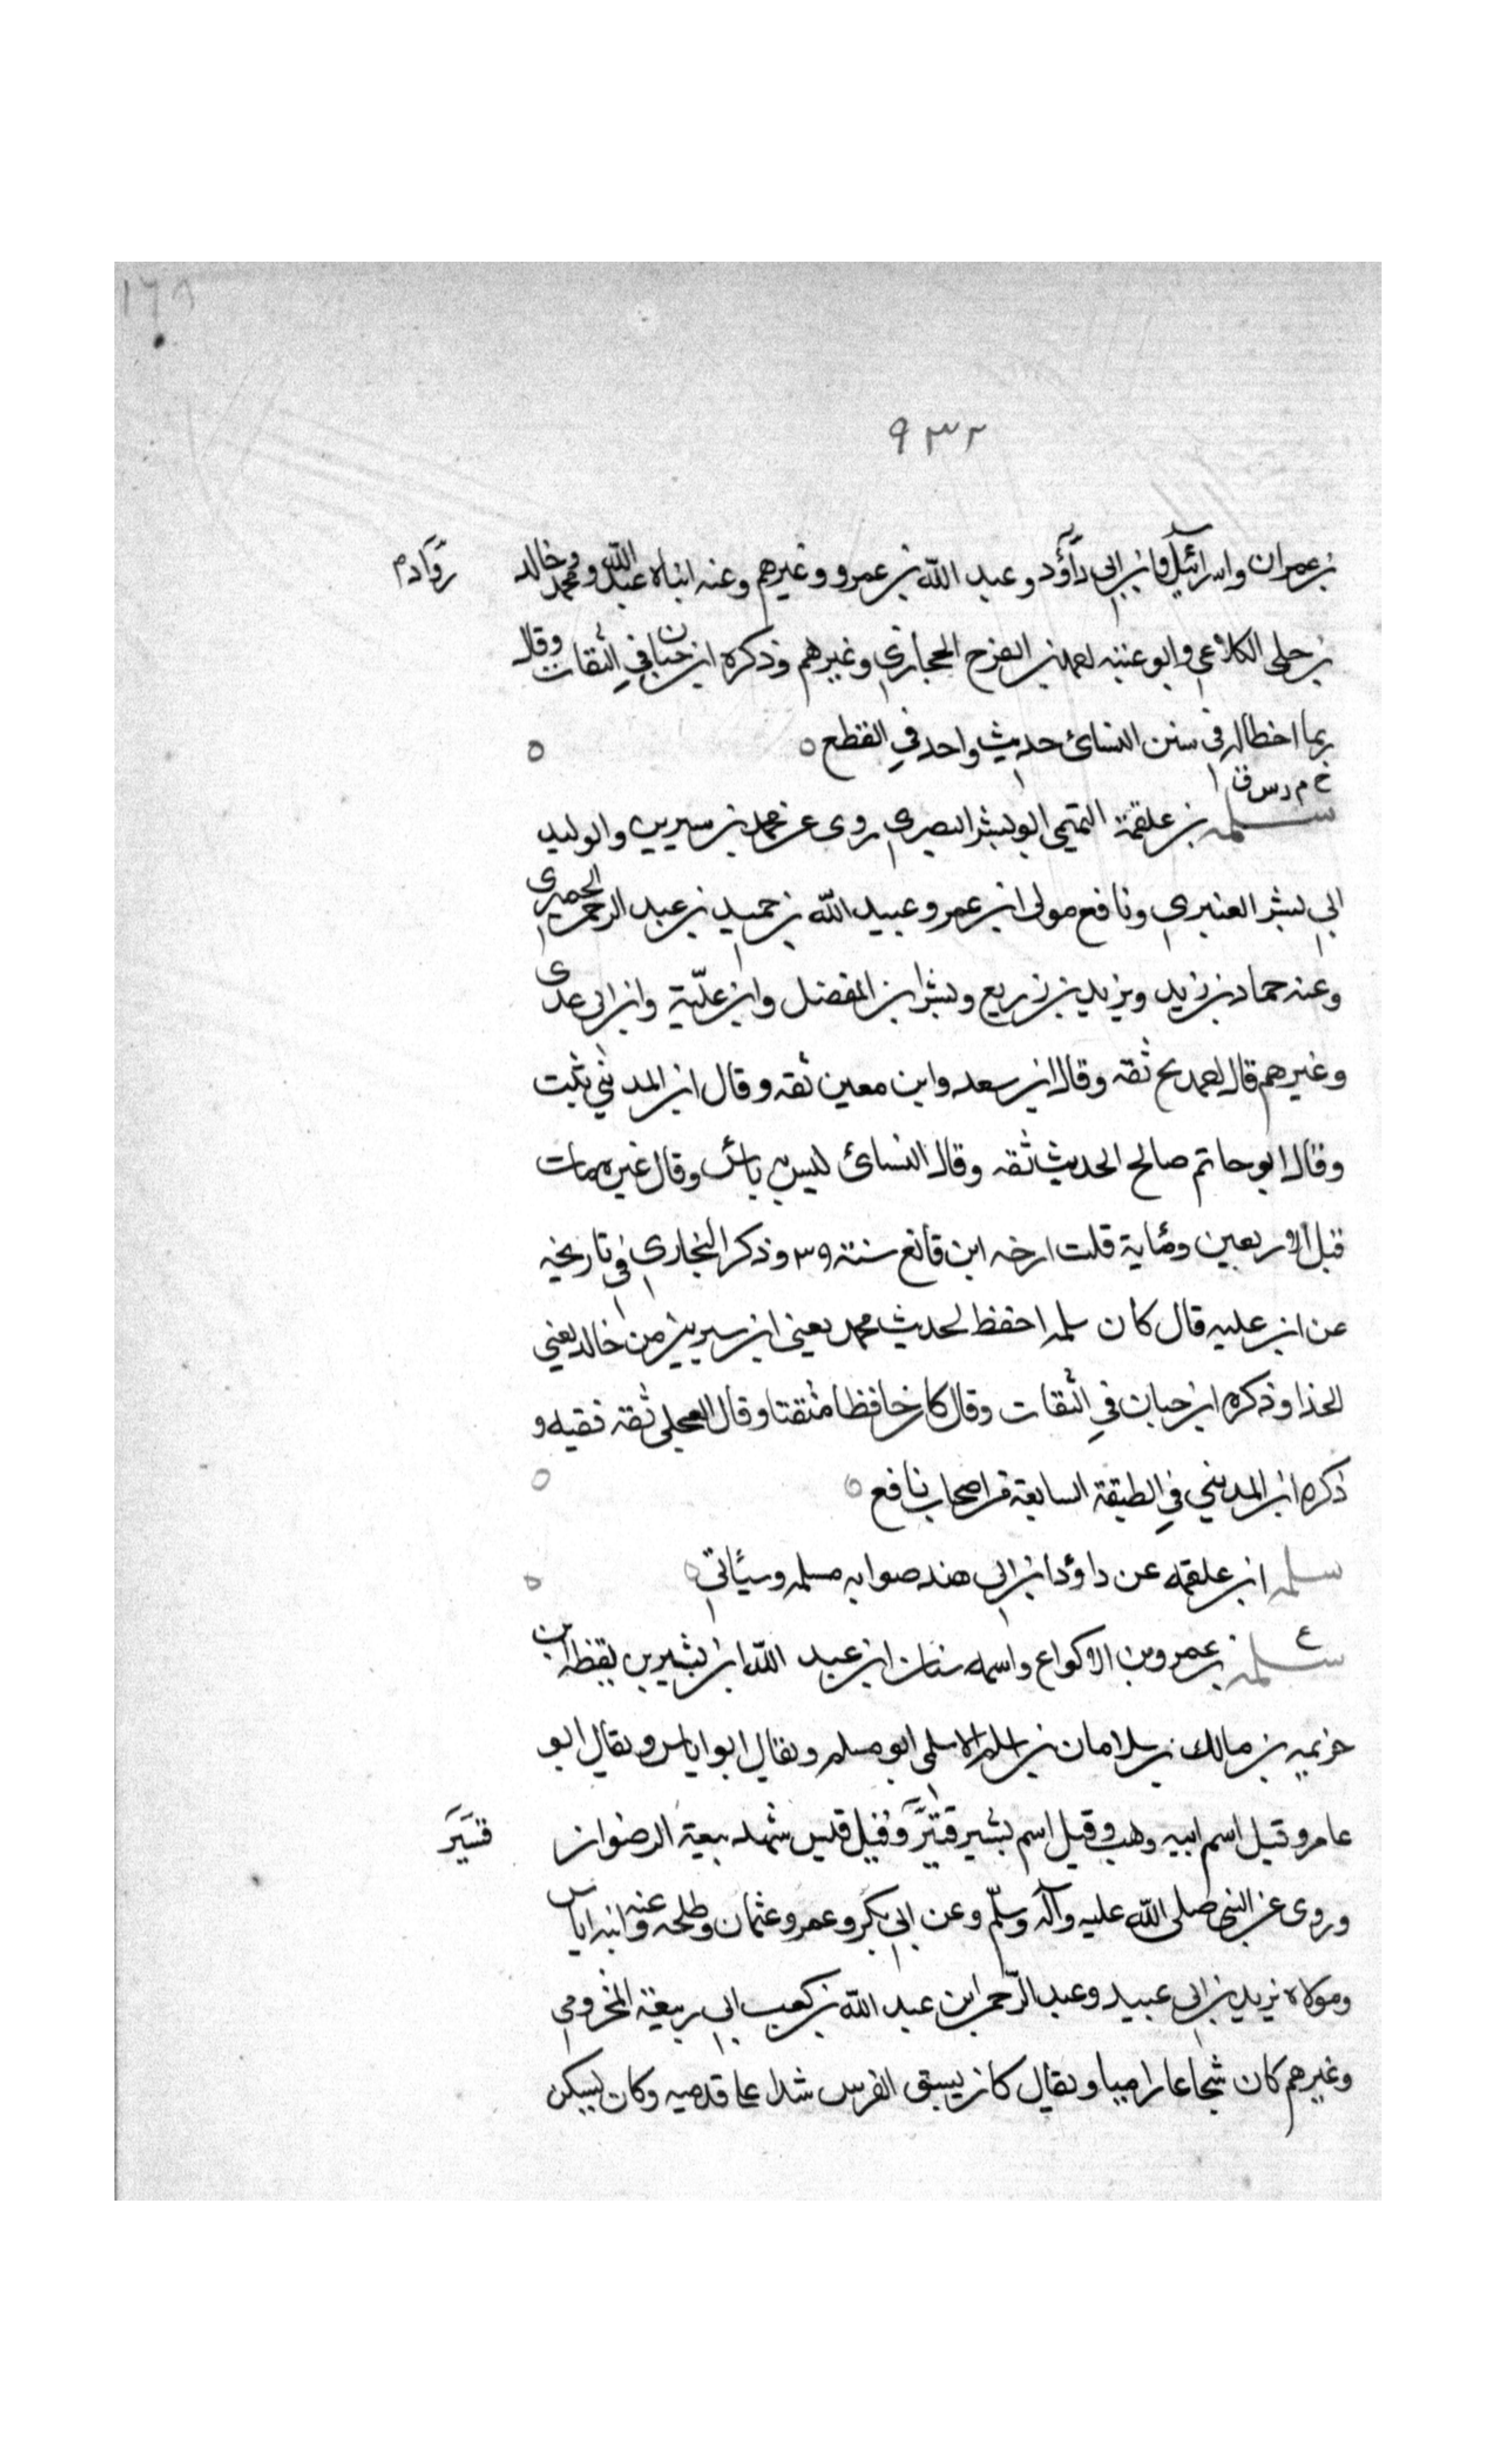 ١٦٨
٩٣٢
بن عمران واسرائيل وابن ابي داؤد وعبد الله بن عمرو وغيرهم وعنه ابناه عبد الله ومحمد وخالد
روّاد م
بن حلي الكلاعي وابو عتبه احمد بن الفرج الحجازي وغيرهم وذكره ابن حبان في الثقات وقال
ربما اخطا له في سنن النسائ حديث واحد في القطع ٥ ٥
خ م د س ق
سلمه بن علقمة التميمي ابو بشر البصري روى عن محمد بن سيرين والوليد
ابي بشر العنبري ونافع مولى ابن عمر وعبيد الله بن حميد بن عبد الرحمن الحميري
وعنه حماد بن زيد ويزيد بن زريع وبشر ابن المفضل وابن عليّة وابن ابي عدى
وغيرهم قال احمد بخ ثقه وقال ابن سعد وابن معين ثقه وقال ابن المديني ثبت
وقال ابو حاتم صالح الحديث ثقه وقال النسائ ليس به باس وقال غيره مات
قبل الاربعين ومئاية قلت ارخه ابن قانع سنة ٣٩ وذكر البخاري في تاريخه
عن ابن عليه قال كان سلمه احفظ لحديث محمد يعني ابن سيرين من خالد يعني
الحذا وذكره ابن حبان في الثقات وقال كان حافظا متقنا وقال العجلي ثقه فقيه و
ذكره ابن المديني في الطبقة السابعة من اصحاب نافع ٥ ٥
سلمه ابن علقمه عن داؤد ابن ابي هند صوابه مسلمه وسيأتي ٥ ٥
ع
سلمه بن عمرو بن الاكواع واسمه سنان ابن عبد الله ابن بشير بن يقظه ابن
خزيمه بن مالك بن سلامان بن اسلم الاسلمي ابو مسلم ويقال ابو اياس ويقال ابو
عامر وقيل اسم ابيه وهب وقيل اسم بشير قتيّر وقيل قيس شهد بيعة الرضوان
قشير
وروى عن النبي صلى الله عليه وآله وسلّم وعن ابي بكر وعمر وعثمان وطلحه وعنه ابنه اياس
ومولاه يزيد بن ابي عبيد وعبد الرّحمن ابن عبد الله بن كعب ابي ربيعة المخزومي
وغيرهم كان شجاعا راميا ويقال كان يسبق الفرس شدا على قدميه وكان يسكن